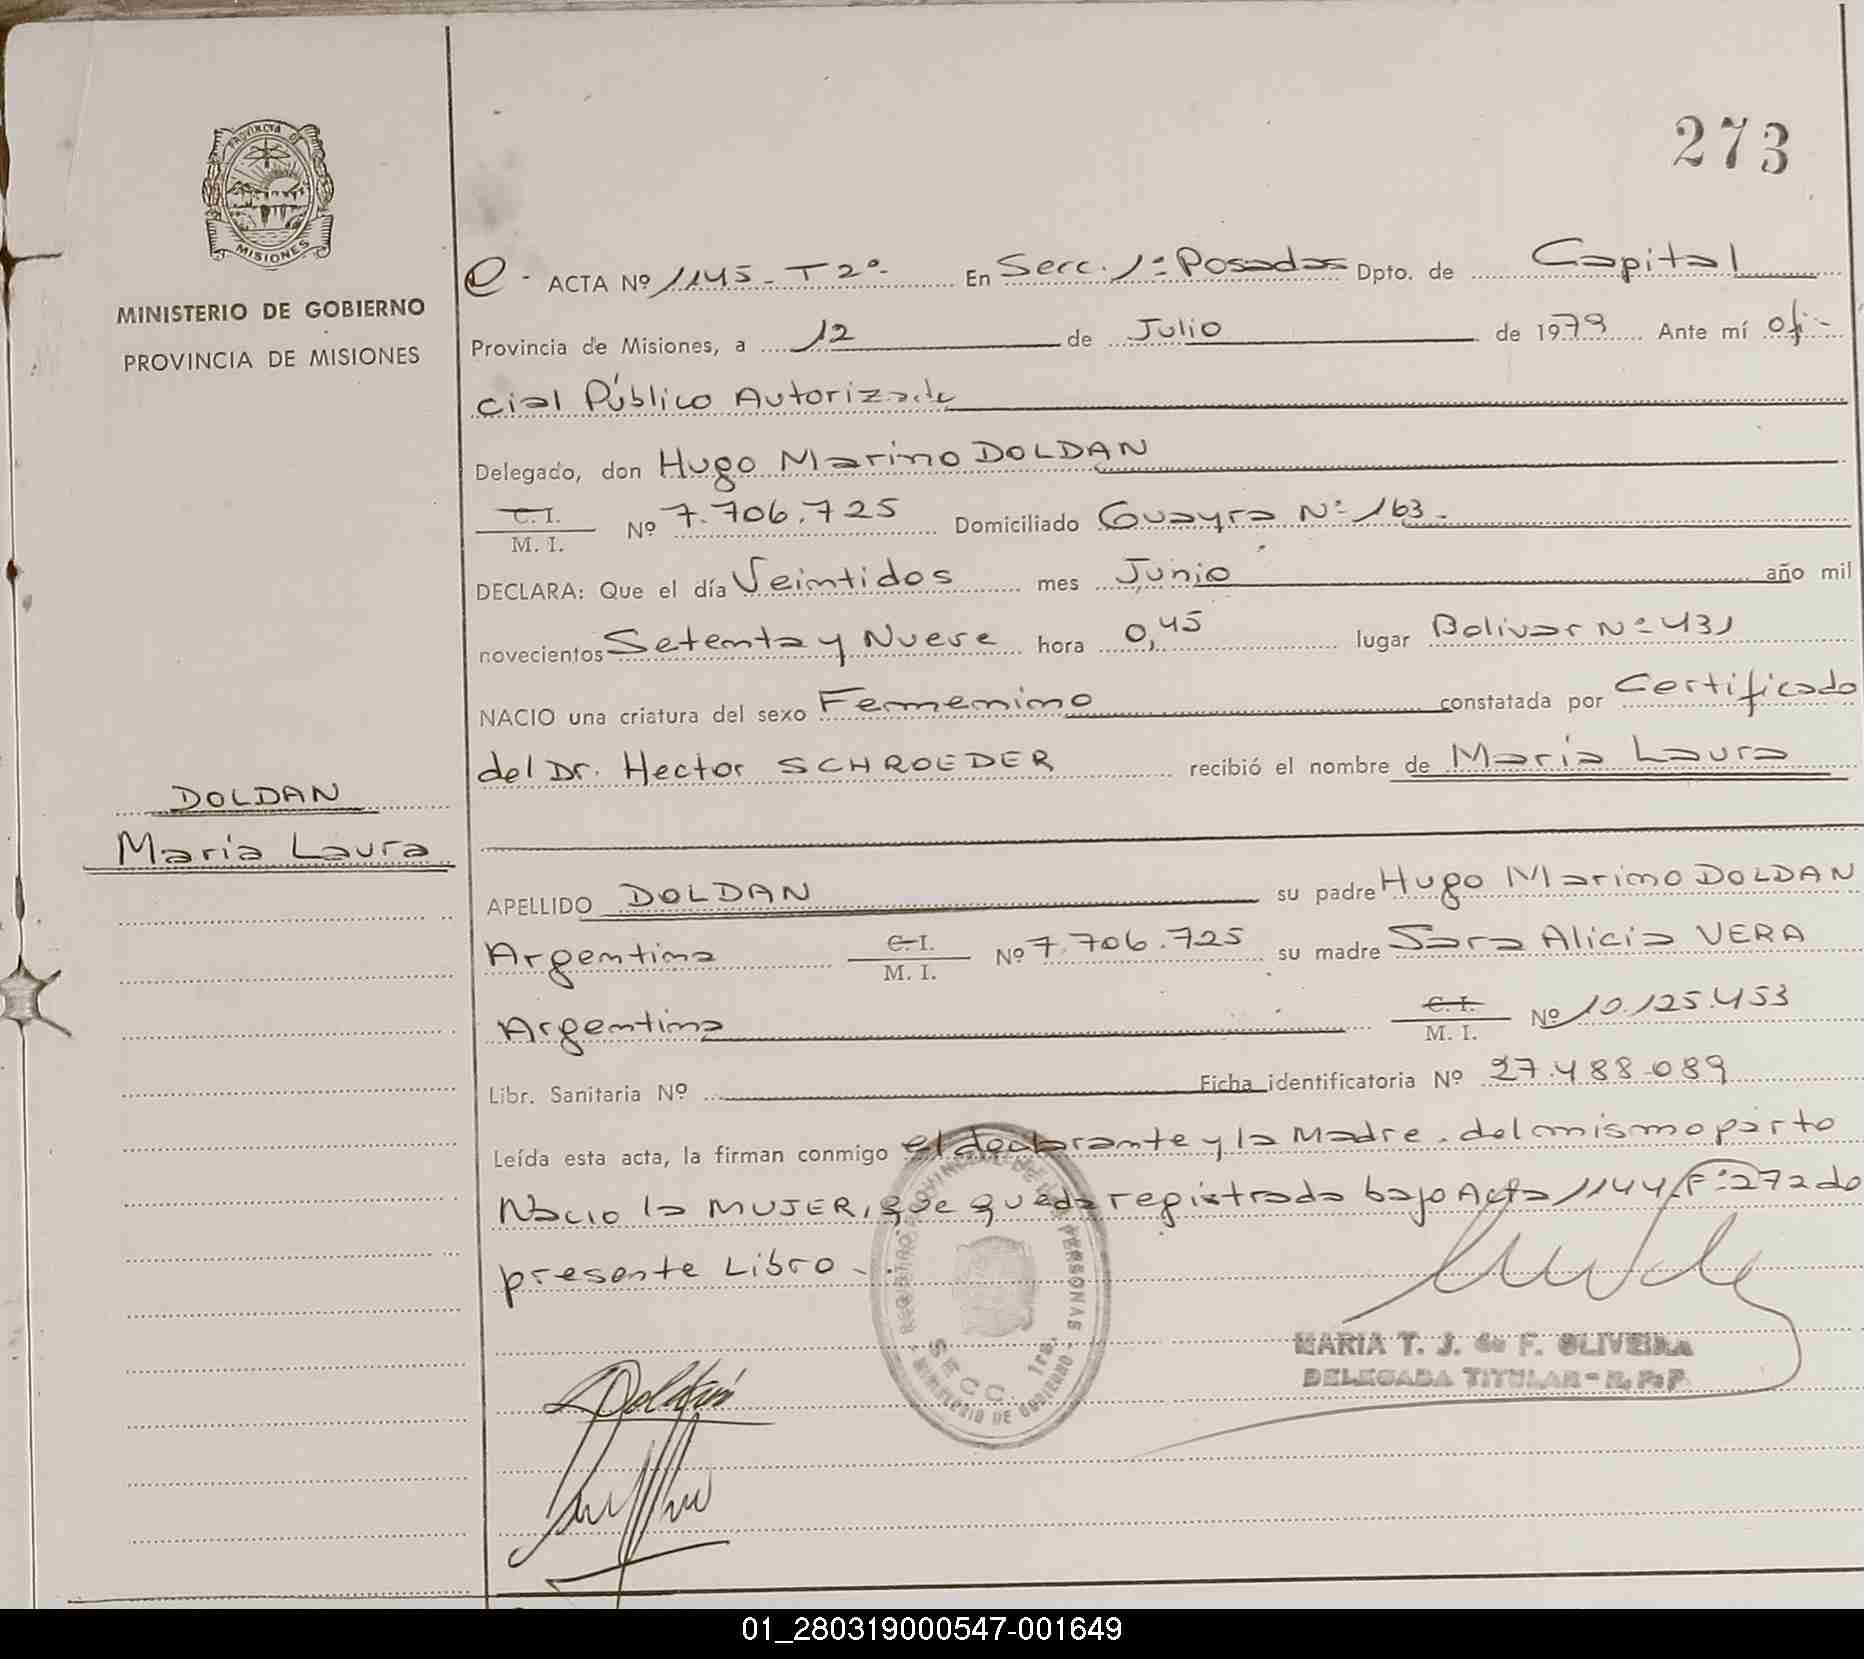 273
PROVINCIA DE
MISIONES
MINISTERIO DE GOBIERNO
PROVINCIA DE MISIONES
DOLDAN
Maria Laura
ACTA Nº 1145 - T 2º - En Serc. 1ª Posadas Dpto. de Capital
Provincia de Misiones, a 12 de Julio de 1979 Ante mí ofi-
cial Público Autorizado
Delegado, don Hugo Marino DOLDAN
C. I.
M. I. Nº 7.706.725 Domiciliado Guayra Nº 163.
DECLARA: Que el día Veintidos mes Junio año mil
novecientos Setenta y Nueve hora 0,45 lugar Bolivar Nº 431
NACIO una criatura del sexo Femenino constatada por Certificado
del Dr. Hector SCHROEDER recibió el nombre de Maria Laura
APELLIDO DOLDAN su padre Hugo Marino DOLDAN
Argentina C. I. M. I. Nº 7.706.725 su madre Sara Alicia VERA
Argentina C. I. M. I. Nº 10.125.453
Libr. Sanitaria Nº Ficha identificatoria Nº 27.488.089
Leída esta acta, la firman conmigo el declarante y la Madre. del mismo parto
Nacio la MUJER, que queda registrada bajo Acta 1144 Fº 272 do
presente Libro -.
REGISTRO PROVINCIAL DE LAS PERSONAS
SECC. 1ra.
MINISTERIO DE GOBIERNO
MARIA T. J. de F. OLIVEIRA
DELEGADA TITULAR - R. P. P.
Doldán
01_280319000547-001649